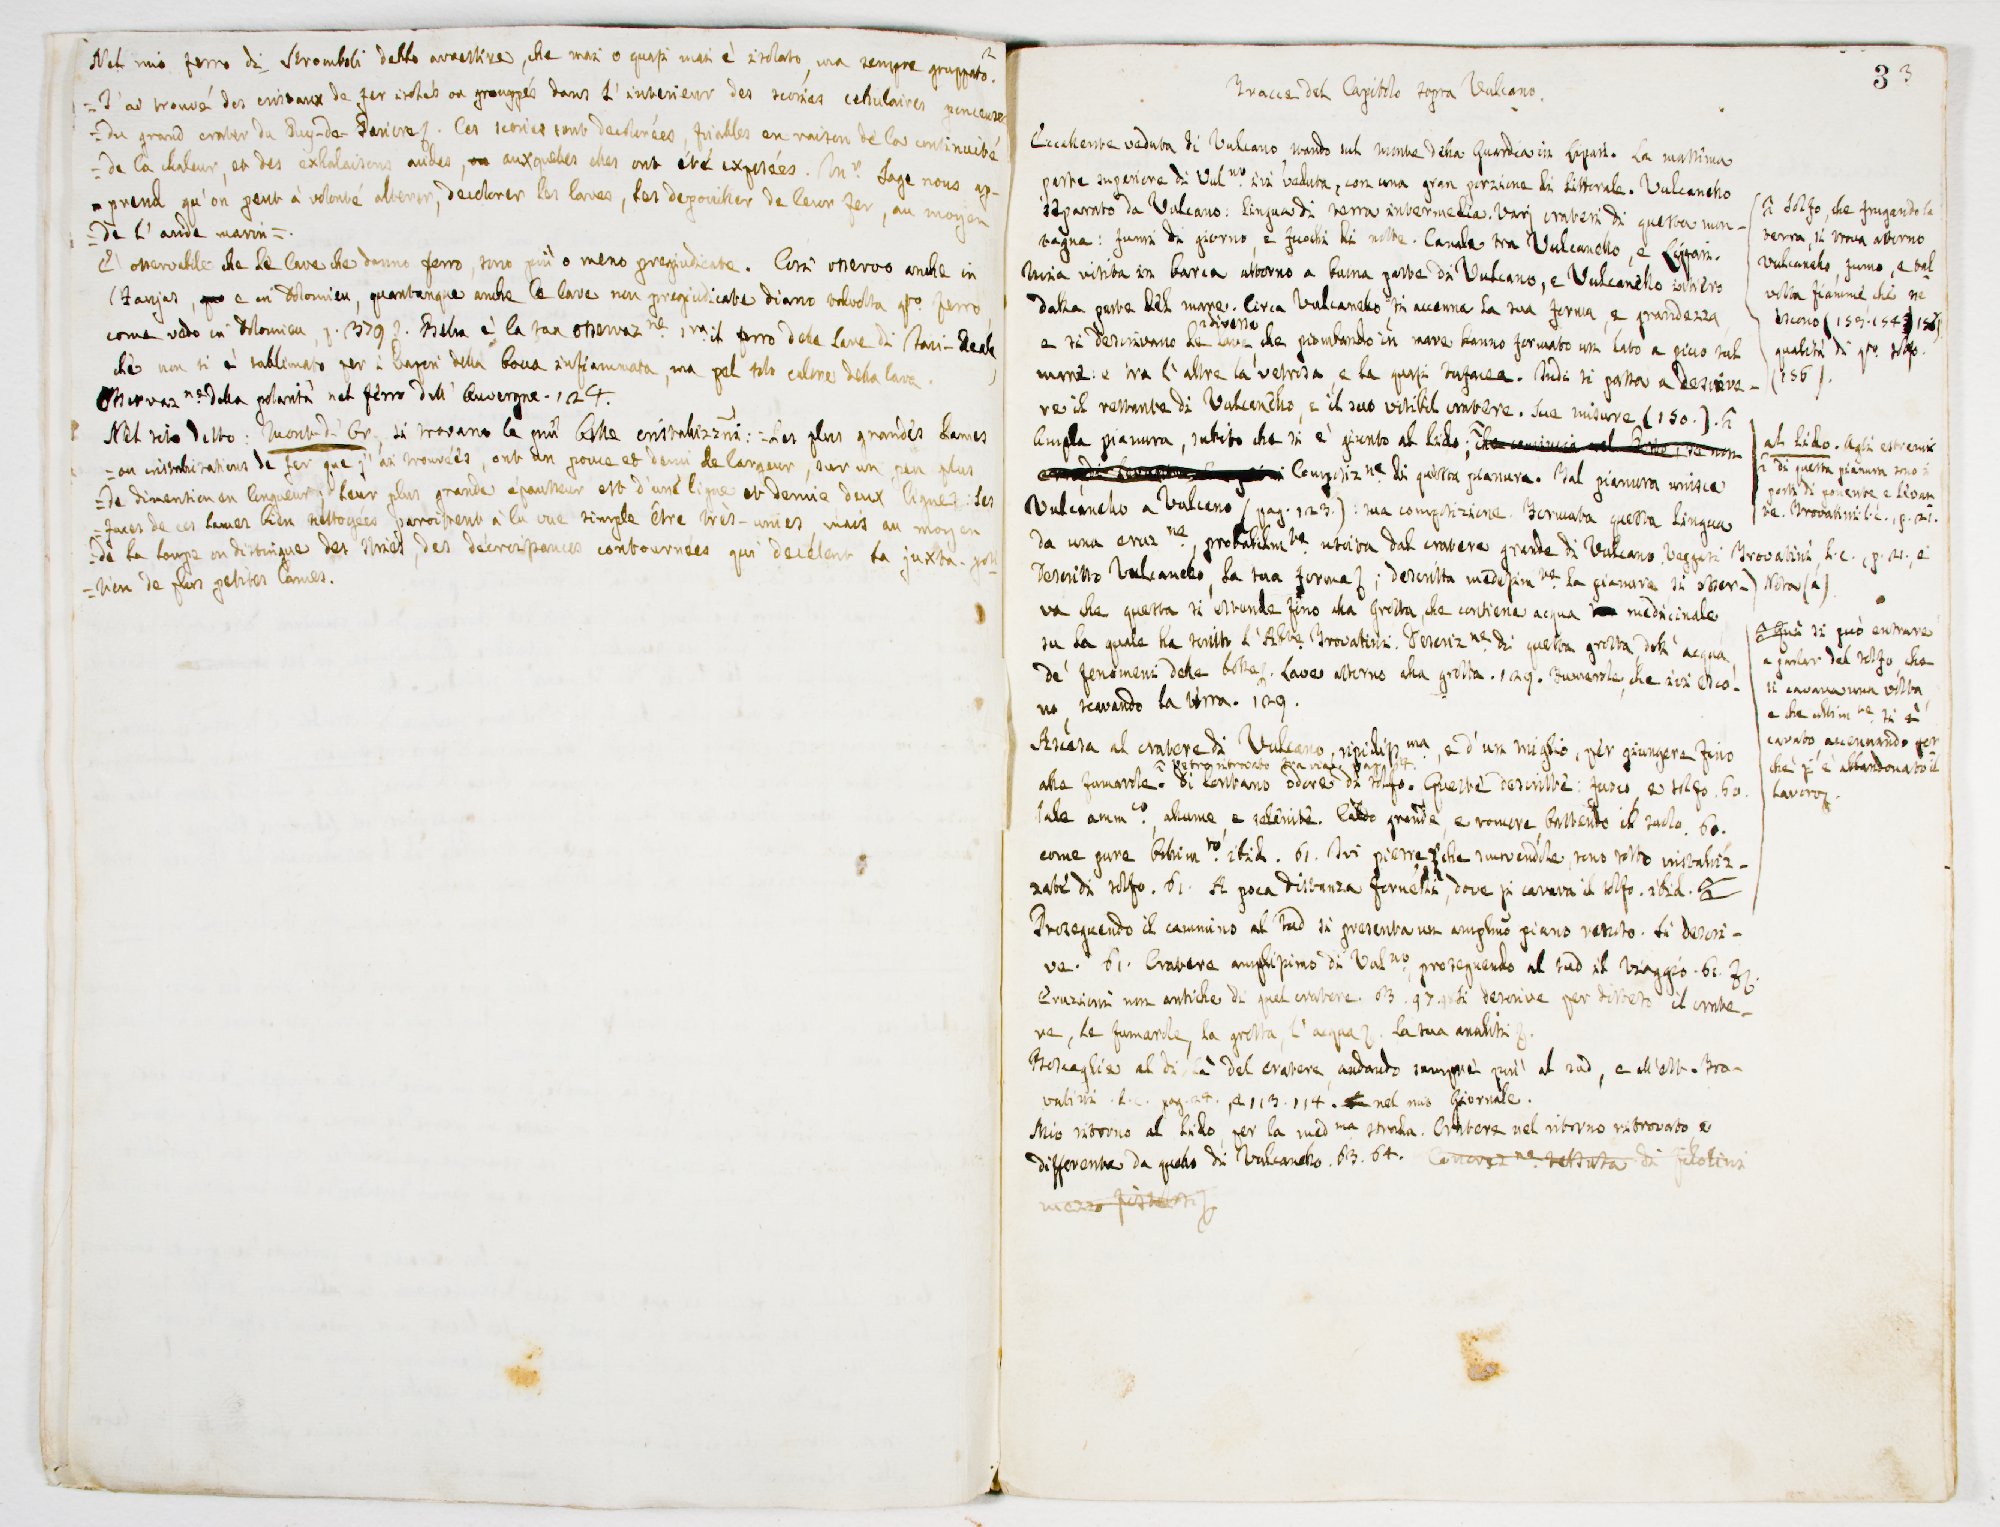 2
Nel mio ferro di Stromboli debbo avvertire, che mai o quasi mai è isolato, ma sempre gruppato.
= J'ai trouvé des cristaux de fer isolés ou grouppés dans l'interieur des scories cellulaires
= du grand crater du Puy-de-. Ces scories sont decolorées, friables en raison de la continuité
= de la chaleur, et des exhalaisons acides, auxquelles elles ont été exposées. Mr. Sage nous ap-
= prend qu'on peut à volonté alterer, decolorer les laves, les depouiller de leur fer, au moyen
= de l'acide marin =.
È osservabile che le lave che danno ferro, sono più o meno pregiudicate. Così osservo anche in
Faujas, e in Dolomieu, quantunque anche le lave non pregiudicate diano talvolta qto. ferro
come vedo in Dolomieu, p. 379. Bella è la sua osservazne. il ferro delle lave di Jaci-Reale
che non si è sublimato per i vapori della bocca infiammata, ma pel solo calore della lava.
Osservazne. della polarità nel ferro dell'Auvergne. 124.
Nel sito detto: Mont-d'Or, si trovano le più belle cristallizzni: = Les plus grandes lames
= ou cristalisations de fer que j'ai trouvées, ont un pouce et demi de largeur, sur un peu plus
= de dimention en longueur; leur plus grande epaisseur est d'une ligne et demie deux lignes: Les
= faces de ces lames bien nettoyées paroissent à la vue simple être très-unies mais au moyen
= de la loupe on distingue des stries, des decroissances contournées qui decélent la juxta-posi
= tion de plus petites lames.
3 3
Tracce del Capitolo sopra Vulcano.
Eccellente veduta di Vulcano stando sul monte della Guardia in Lipari. La massima
parte superiore di Vulno. ivi veduta, con una gran porzione di littorale. Vulcanello
separato da Vulcano: lingua di terra intermedia. Varj crateri di questa mon-
tagna: fumi di giorno, e fuochi di notte. Canale tra Vulcanello, e Lipari.
Mia visita in barca attorno a buona parte di Vulcano, e Vulcanello intero
dalla parte del mare. Circa Vulcanello si accenna la sua forma, e grandezza,
e si descrivano le diverse lave che piombando in mare hanno formato un lato a picco sul
mare: e tra l'altre la vetrosa, e la quasi tufacea. Indi si passa a descrive-
re il restante di Vulcanello, e il suo visibil cratere. Sue misure (150.).
Ampla pianura, subito che si è giunto al lido;
Composizne. di questa pianura. Tal pianura unisce
Vulcanello a Vulcano (pag. 123.): sua composizione. Formata questa lingua
da una eruzne., probabilmte. uscita dal cratere grande di Vulcano. Veggasi Trovatini, l. c., p. 21., e
Descritto Vulcanello, la sua forma; descritta medesimte. la pianura si osser-
va che questa si estende fino alla grotta, che contiene acqua medicinale
su la quale ha scritto l'Abte. Trovatini. Descrizne. di questa grotta dell'acqua,
de' fenomeni delle bolle. Lave attorno alla grotta. 129. Fumarole, che ivi esco-
no, scavando la terra. 129.
Ascesa al cratere di Vulcano, ripidissma, e d'un miglio, per giungere fino
Vetro ritrovato tra via, pag. 64.
alle fumarole. Di lontano odore di solfo. Queste descritte: fuoco, e solfo. 60.
Sale ammco., allume, e selenite. Caldo grande, e romore, battendo il suolo. 60.
come pure ibid. 61. Ivi pierre, che movendole, sono sotto cristalliz-
zate di solfo. 61. A poca distanza fornelli, dove si cavava il solfo. ibid.
Proseguendo il cammino al Sud si presenta un amplmo piano vestito. Si descri-
ve. 61. Cratere amplissimo di Vulno. proseguendo al sud il viaggio. 61.
Eruzioni non antiche di quel cratere. 63. 97. Si descrive per disteso il crate-
re, le fumarole, la grotta, l'acqua. La sua analisi.
Boscaglie al di là del cratere, andando sempre più al sud, e all'est. Tro-
vatini. l. c. pag. 24., e 113. 114. nel mio Giornale.
Mio ritorno al lido, per la medma strada. Cratere nel ritorno ritrovato, e
differente da quello di Vulcanello. 63. 64. di
mezzo
Il Solfo, che frugando la
terra, si trova attorno
Vulcanello, fumo, e tal
volta fiamme che ne
escono (153. 154.
qualità di qto. solfo.
(156).
al lido. Agli estremi
di questa pianura sono i
porti di ponente e levan
te. Trovatini l. c., p. 21.
Nota (a)
Qui si può entrare
a parlar del solfo che
si cavava una volta
e che ultimte. si è
cavato accennando per
chè si è abbandonato il
lavoro.